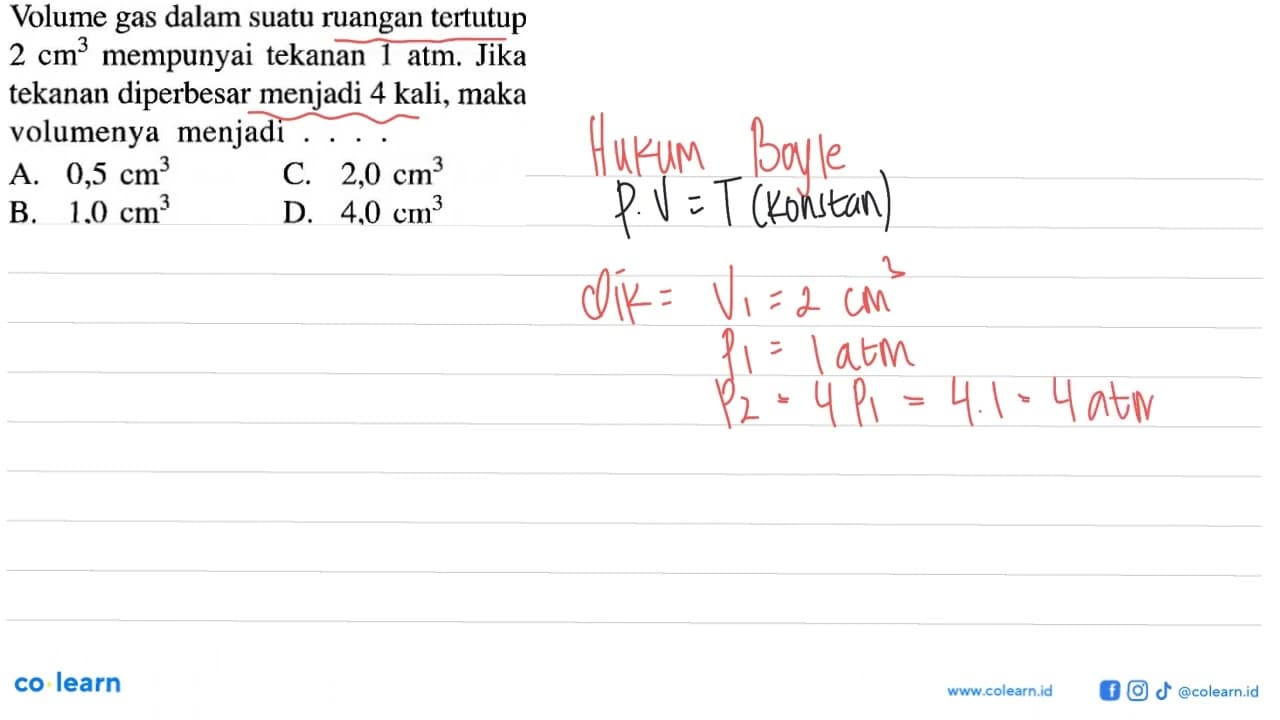 Volume gas dalam suatu ruangan tertutup
2 cm³ mempunyai tekanan 1 atm. Jika
tekanan diperbesar menjadi 4 kali, maka
volumenya menjadi . . . .
A. 0,5 cm³ C. 2,0 cm³
B. 1,0 cm³ D. 4,0 cm³
Hukum Boyle
P.V = T (Konstan)
dik = V₁ = 2 cm³
P₁ = 1 atm
P₂ = 4 P₁ = 4.1 = 4 atm
co learn
www.colearn.id
@colearn.id